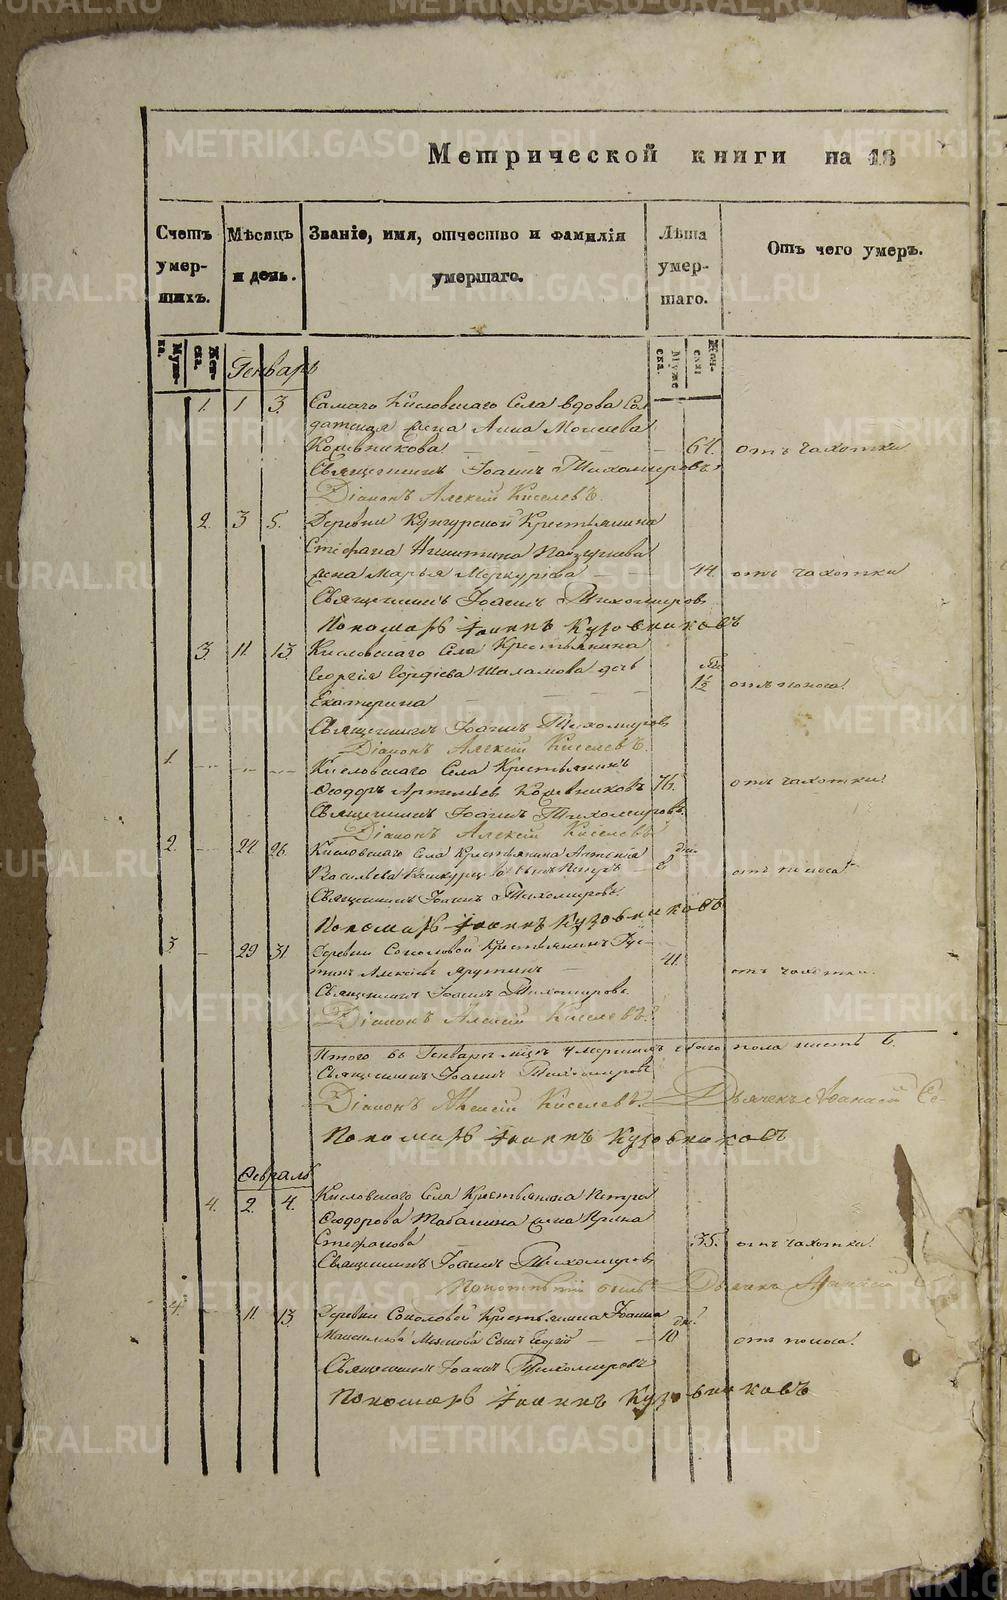 Метрической книги на 18
Счетъ умершихъ.
Мѣсяцъ и день.
Званіе, имя, отчество и фамилія умершаго.
Лѣта умершаго.
Отъ чего умеръ.
Мужеска. Женска.
Мужеска Женски
Генварь
1. 1 3. Самаго Кисловскаго Села вдова Сол
датская жена Анна Моисеева
Кожевникова 64. отъ чахотки
Священникъ Іоаннъ Тихомировъ
Діаконъ Алексій Киселевъ.
2. 3 5. Деревни Кунгурской Крестьянина
Стефана Никитина
жена Марья Меркурьева 44. отъ чахотки
Священникъ Іоаннъ Тихомировъ
Пономарь Іоаннъ Кузовниковъ
3. 11. 13. Кисловскаго Села Крестьянина
Георгія Шаламова дочь
Екатерина 1½ отъ поноса.
Священникъ Іоаннъ Тихомировъ
Діаконъ Алексій Киселевъ.
1. Кисловскаго Села Крестьянинъ
Ѳеодоръ Артемьевъ Кожевниковъ 76. отъ чахотки.
Священникъ Іоаннъ Тихомировъ
Діаконъ Алексій Киселевъ.
2. 24. 26. Кисловскаго Села Крестьянина
Васильева сынъ 8 отъ поноса
Священникъ Іоаннъ Тихомировъ
Пономарь Іоаннъ Кузовниковъ
3. 29 31 Деревни Соколовой Крестьянинъ
Алексѣевъ 41. отъ чахотки.
Священникъ Іоаннъ Тихомировъ
Діаконъ Алексій Киселевъ.
Итого въ Генварѣ м҃цѣ умершихъ обоего пола шесть 6.
Священникъ Іоаннъ Тихомировъ
Діаконъ Алексій Киселевъ. Дьячекъ Аѳанасій
Пономарь Іоаннъ Кузовниковъ
Февраль
4. 2. 4. Кисловскаго Села Крестьянина Петра
Ѳеодорова Табачина жена Ирина
Стефанова 35. отъ чахотки.
Священникъ Іоаннъ Тихомировъ
Дьячекъ
4. 11. 13. Деревни Соколовой Крестьянина Іоанна
сынъ Георгій 10 отъ поноса.
Священникъ Іоаннъ Тихомировъ
Пономарь Іоаннъ Кузовниковъ
METRIKI.GASO-URAL.RU